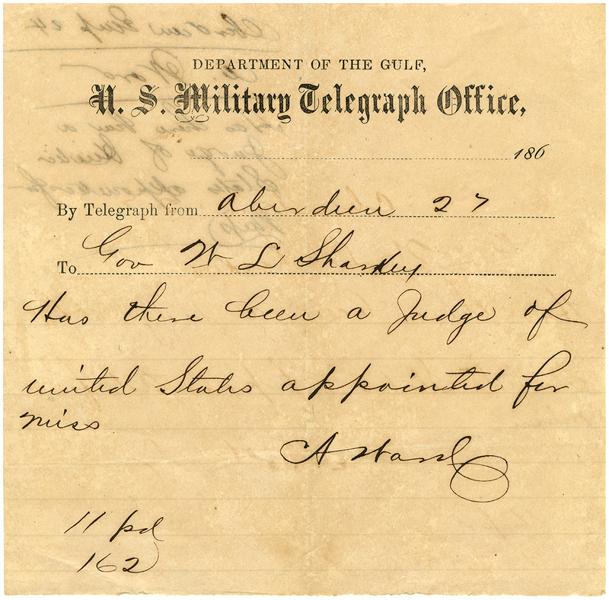 DEPARTMENT OF THE GULF,
U. S. Military Telegraph Office,
186
By Telegraph from Aberdeen 27
To Gov W L Sharkey
Has there been a Judge of
united States appointed for
miss
A Ward
11 pd
162